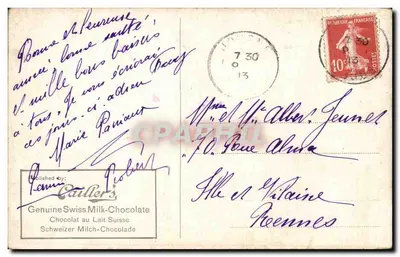 Bonne et heureuse
année, bonne santé,
et mille bons baisers
à tous. Je vous écrirai
ces jours-ci adieu
Marie Paniaut
Robert
Published by:
Cailler's
Genuine Swiss Milk-Chocolate
Chocolat au Lait Suisse
Schweizer Milch-Chocolade
7 30
13
REPUBLIQUE FRANÇAISE
10c
POSTES
Mme et Mr Albert Jeunet
70, Rue Alma
Ille et Vilaine
Rennes
DELCAMPE